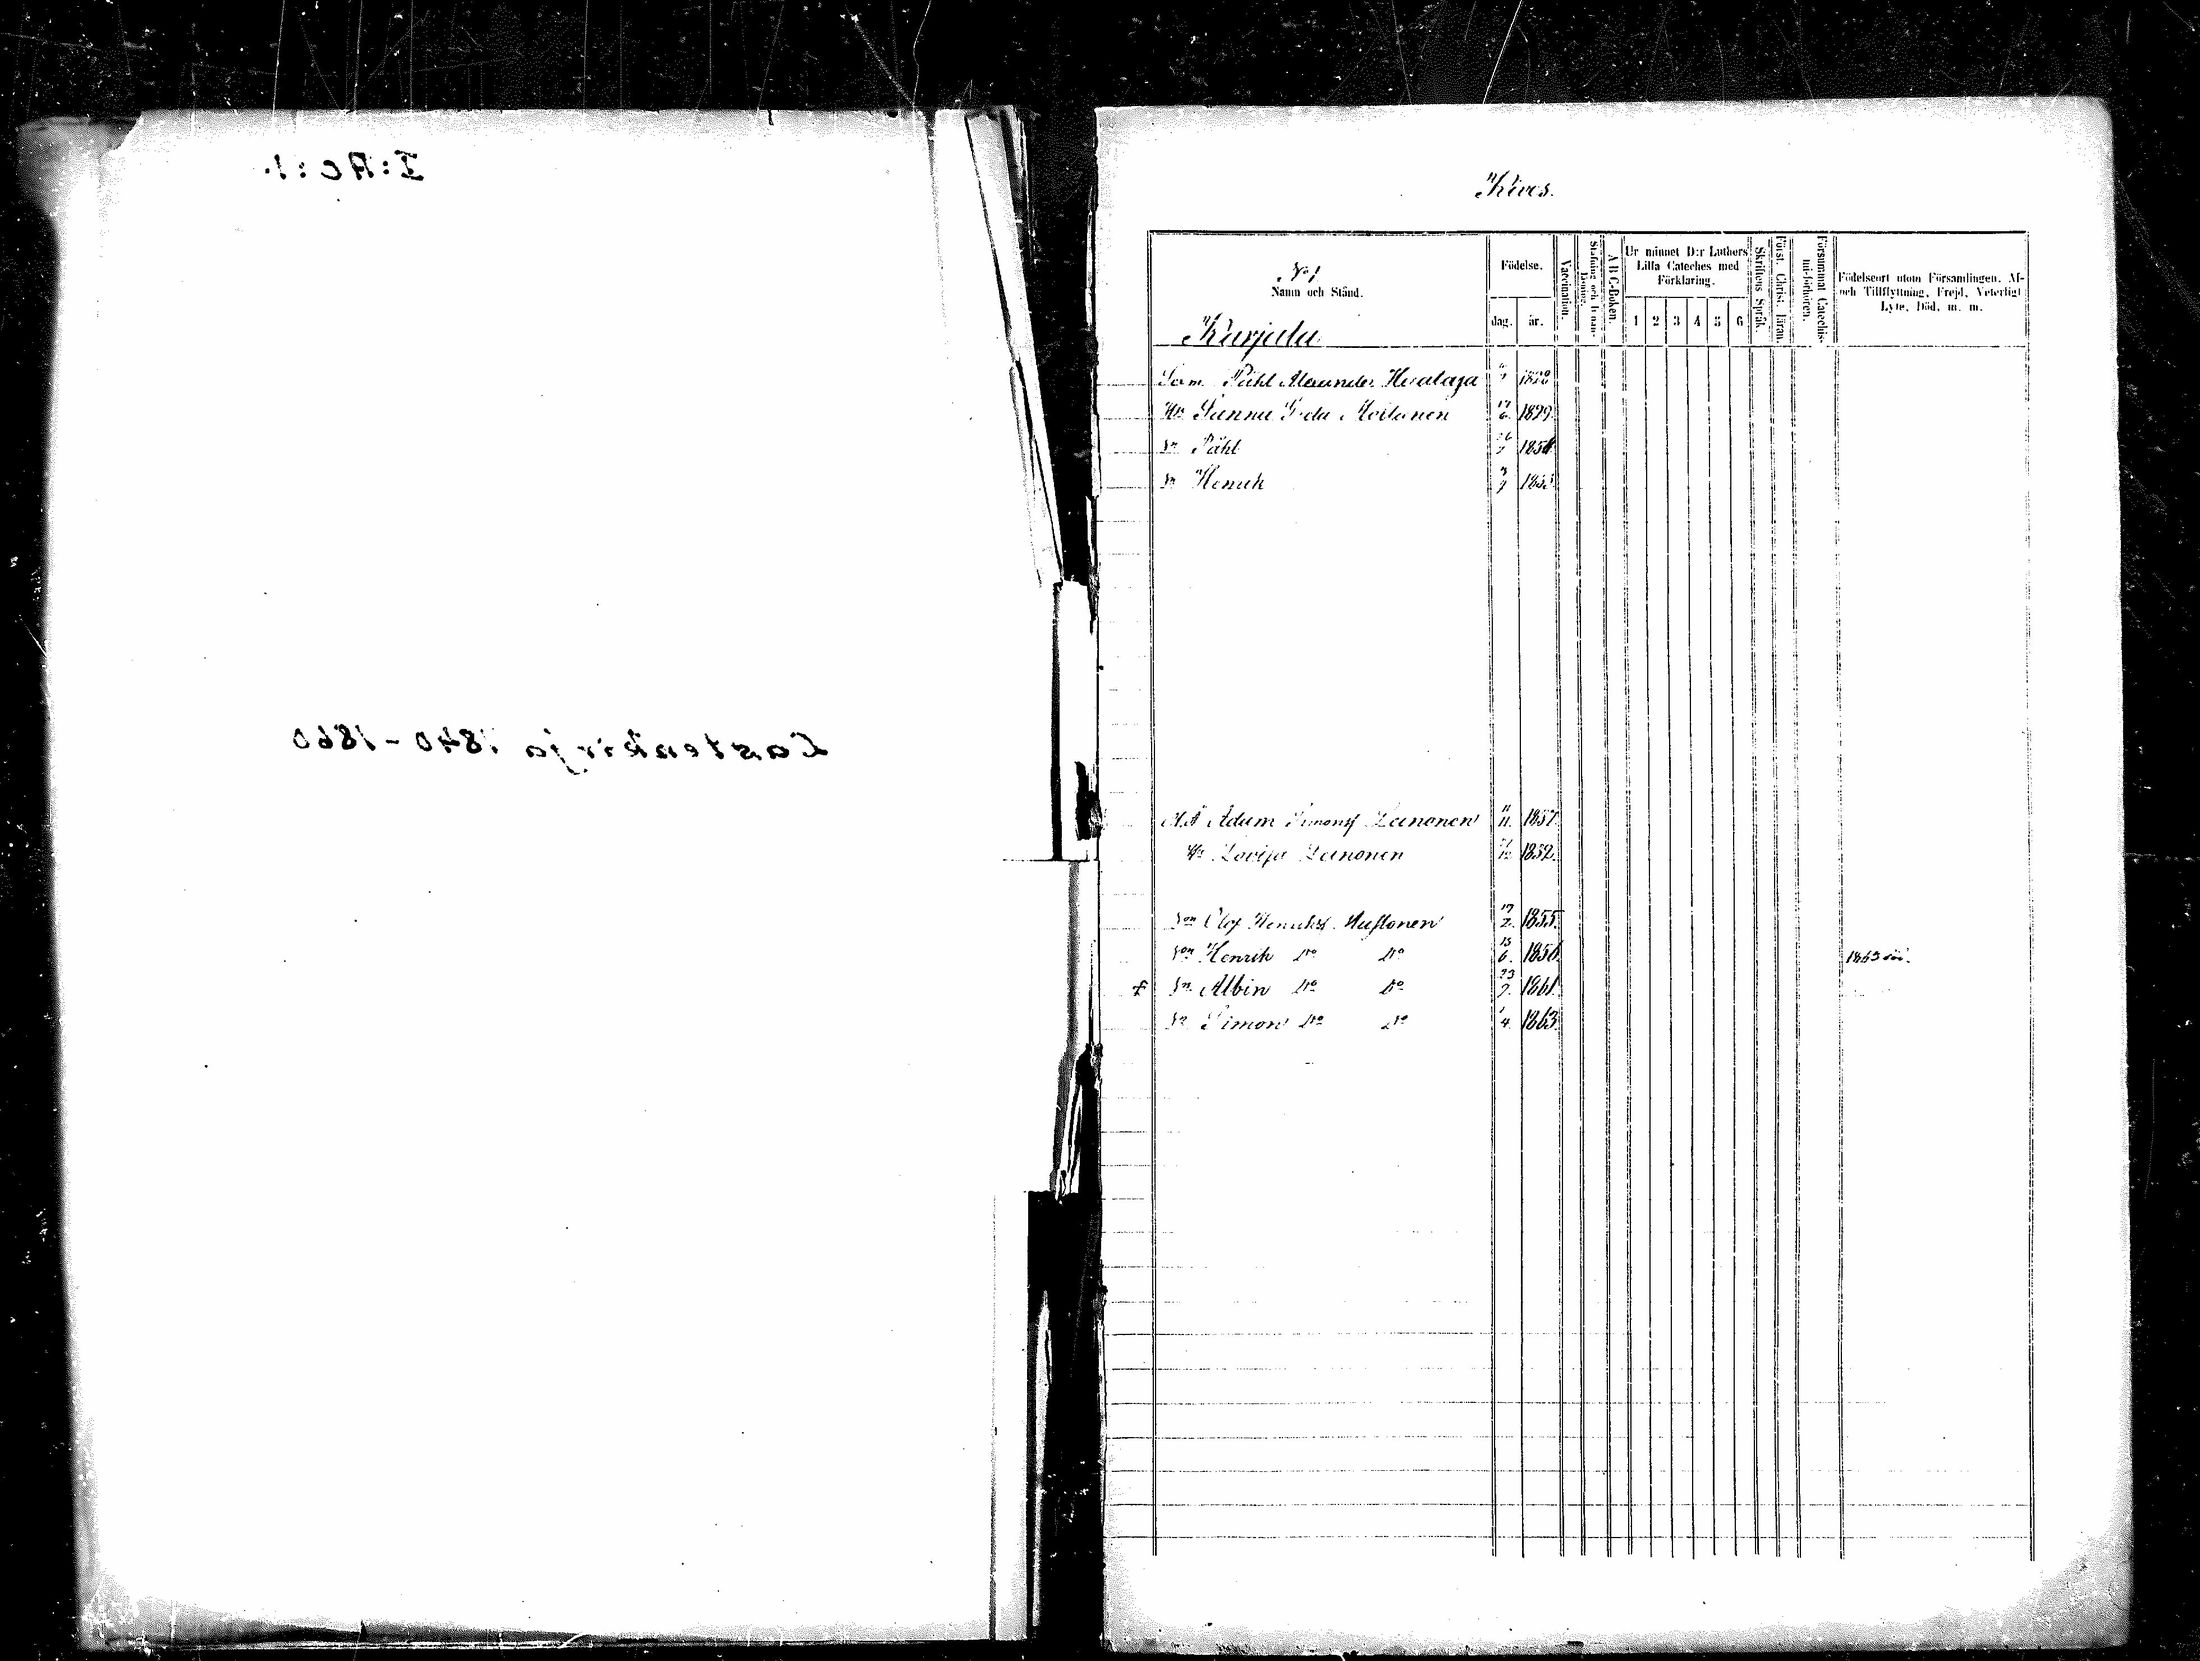 I:Ac:1.
Lastenkirja 1840-1860
Kives.
No 1
Namn och Stånd.
Karjala
Födelse.
dag.
år.
Vaccination.
Stafning och Innan-
läsning.
A B C-Boken.
Ur minnet D:r Luthers
Lilla Cateches med
Förklaring.
1 2 3 4 5 6
Skriftens Språk.
Först. Christ. läran.
Försummat Catechis-
mi-förhören.
Födelseort utom Församlingen, Af-
och Tillflyttning, Frejd, Veterligt
Lyte, Död, m. m.
Påhl Alexander
1829
Påhl
Henrik
Adam Simonsf Leinonen 11/11. 1857.
Lovisa Leinonen 1852.
Son Olof Henriksf. Mustonen 17/2. 1855.
Son Henrik Do Do 15/6. 1856. 1863
Sn Albin Do Do 23/7. 1861.
Sn Simon Do Do 1/4. 1863.